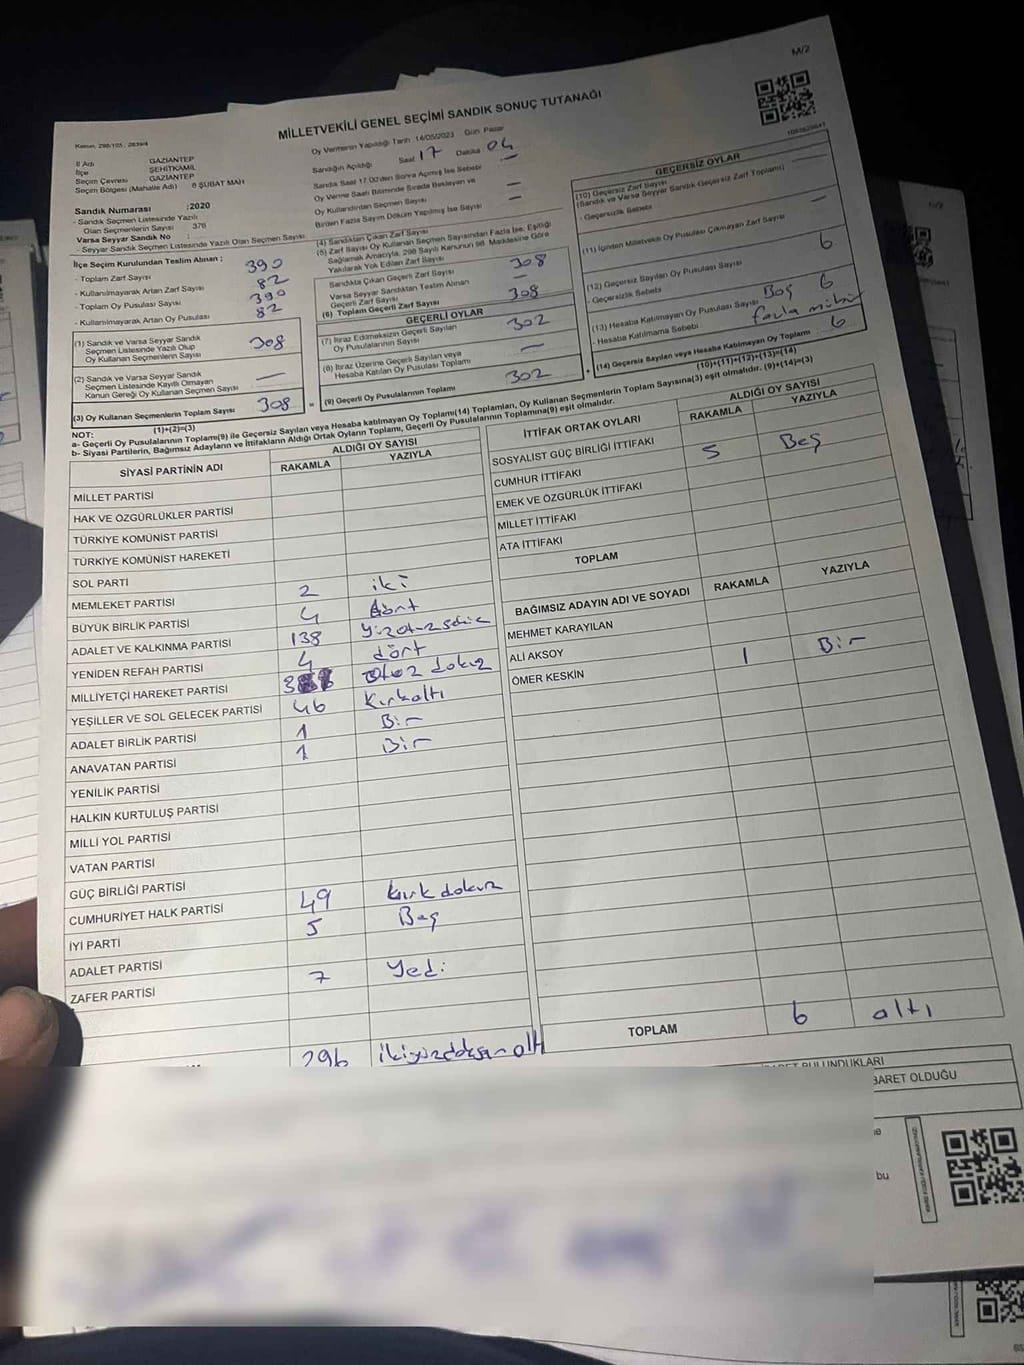 M/2
MİLLETVEKİLİ GENEL SEÇİMİ SANDIK SONUÇ TUTANAĞI
Kanun, 298/105 , 2839/4
Oy Vermenin Yapıldığı Tarih 14/05/2023 Gün Pazar
İl Adı GAZİANTEP
İlçe ŞEHİTKAMİL
Seçim Çevresi GAZİANTEP
Seçim Bölgesi (Mahalle Adı) 8 ŞUBAT MAH
Sandık Numarası :2020
- Sandık Seçmen Listesinde Yazılı
Olan Seçmenlerin Sayısı 376
Varsa Seyyar Sandık No :
- Seyyar Sandık Seçmen Listesinde Yazılı Olan Seçmen Sayısı
Sandığın Açıldığı Saat 17 Dakika 04
Sandık Saat 17.00'den Sonra Açılmış İse Sebebi —
Oy Verme Saati Bitiminde Sırada Bekleyen ve
Oy Kullandırılan Seçmen Sayısı —
Birden Fazla Sayım Döküm Yapılmış İse Sayısı —
İlçe Seçim Kurulundan Teslim Alınan ;
- Toplam Zarf Sayısı 390
- Kullanılmayarak Artan Zarf Sayısı 82
- Toplam Oy Pusulası Sayısı 390
- Kullanılmayarak Artan Oy Pusulası 82
(1) Sandık ve Varsa Seyyar Sandık
Seçmen Listesinde Yazılı Olup
Oy Kullanan Seçmenlerin Sayısı 308
(2) Sandık ve Varsa Seyyar Sandık
Seçmen Listesinde Kayıtlı Olmayan
Kanun Gereği Oy Kullanan Seçmen Sayısı —
(3) Oy Kullanan Seçmenlerin Toplam Sayısı 308
(1)+(2)=(3)
(4) Sandıktan Çıkan Zarf Sayısı
(5) Zarf Sayısı Oy Kullanan Seçmen Sayısından Fazla İse, Eşitliği
Sağlamak Amacıyla, 298 Sayılı Kanunun 98. Maddesine Göre
Yakılarak Yok Edilen Zarf Sayısı
Sandıkta Çıkan Geçerli Zarf Sayısı 308
Varsa Seyyar Sandıktan Teslim Alınan
Geçerli Zarf Sayısı —
(6) Toplam Geçerli Zarf Sayısı 308
GEÇERLİ OYLAR
(7) İtiraz Edilmeksizin Geçerli Sayılan
Oy Pusulasının Sayısı 302
(8) İtiraz Üzerine Geçerli Sayılan veya
Hesaba Katılan Oy Pusulası Toplamı —
(9) Geçerli Oy Pusulalarının Toplamı 302
GEÇERSİZ OYLAR
(10) Geçersiz Zarf Sayısı
(Sandık ve Varsa Seyyar Sandık Geçersiz Zarf Toplamı)
- Geçersizlik Sebebi
(11) İçinden Milletvekili Oy Pusulası Çıkmayan Zarf Sayısı
(12) Geçersiz Sayılan Oy Pusulası Sayısı 6
- Geçersizlik Sebebi
(13) Hesaba Katılmayan Oy Pusulası Sayısı Boş 6
- Hesaba Katılmama Sebebi fazla mühür
(14) Geçersiz Sayılan veya Hesaba Katılmayan Oy Toplamı 6
(10)+(11)+(12)+(13)=(14)
NOT:
a- Geçerli Oy Pusulalarının Toplamı(9) ile Geçersiz Sayılan veya Hesaba katılmayan Oy Toplamı(14) Toplamları, Oy Kullanan Seçmenlerin Toplam Sayısına(3) eşit olmalıdır. (9)+(14)=(3)
b- Siyasi Partilerin, Bağımsız Adayların ve İttifakların Aldığı Ortak Oyların Toplamı, Geçerli Oy Pusulalarının Toplamına(9) eşit olmalıdır.
SİYASİ PARTİNİN ADI
ALDIĞI OY SAYISI
RAKAMLA YAZIYLA
MİLLET PARTİSİ
HAK VE ÖZGÜRLÜKLER PARTİSİ
TÜRKİYE KOMÜNİST PARTİSİ
TÜRKİYE KOMÜNİST HAREKETİ
SOL PARTİ
MEMLEKET PARTİSİ 2 iki
BÜYÜK BİRLİK PARTİSİ 4 dört
ADALET VE KALKINMA PARTİSİ 138 yüzotuzsekiz
YENİDEN REFAH PARTİSİ 4 dört
MİLLİYETÇİ HAREKET PARTİSİ Otuz dokuz
YEŞİLLER VE SOL GELECEK PARTİSİ 46 Kırkaltı
ADALET BİRLİK PARTİSİ 1 Bir
ANAVATAN PARTİSİ 1 Bir
YENİLİK PARTİSİ
HALKIN KURTULUŞ PARTİSİ
MİLLİ YOL PARTİSİ
VATAN PARTİSİ
GÜÇ BİRLİĞİ PARTİSİ
CUMHURİYET HALK PARTİSİ 49 kırk dokuz
İYİ PARTİ 5 Beş
ADALET PARTİSİ
ZAFER PARTİSİ 7 Yedi
296 ikiyüzdoksan altı
İTTİFAK ORTAK OYLARI
ALDIĞI OY SAYISI
RAKAMLA YAZIYLA
SOSYALİST GÜÇ BİRLİĞİ İTTİFAKI
CUMHUR İTTİFAKI 5 Beş
EMEK VE ÖZGÜRLÜK İTTİFAKI
MİLLET İTTİFAKI
ATA İTTİFAKI
TOPLAM
BAĞIMSIZ ADAYIN ADI VE SOYADI RAKAMLA YAZIYLA
MEHMET KARAYILAN
ALİ AKSOY 1 Bir
ÖMER KESKİN
TOPLAM 6 altı
BULUNDUKLARI
BARET OLDUĞU
bu